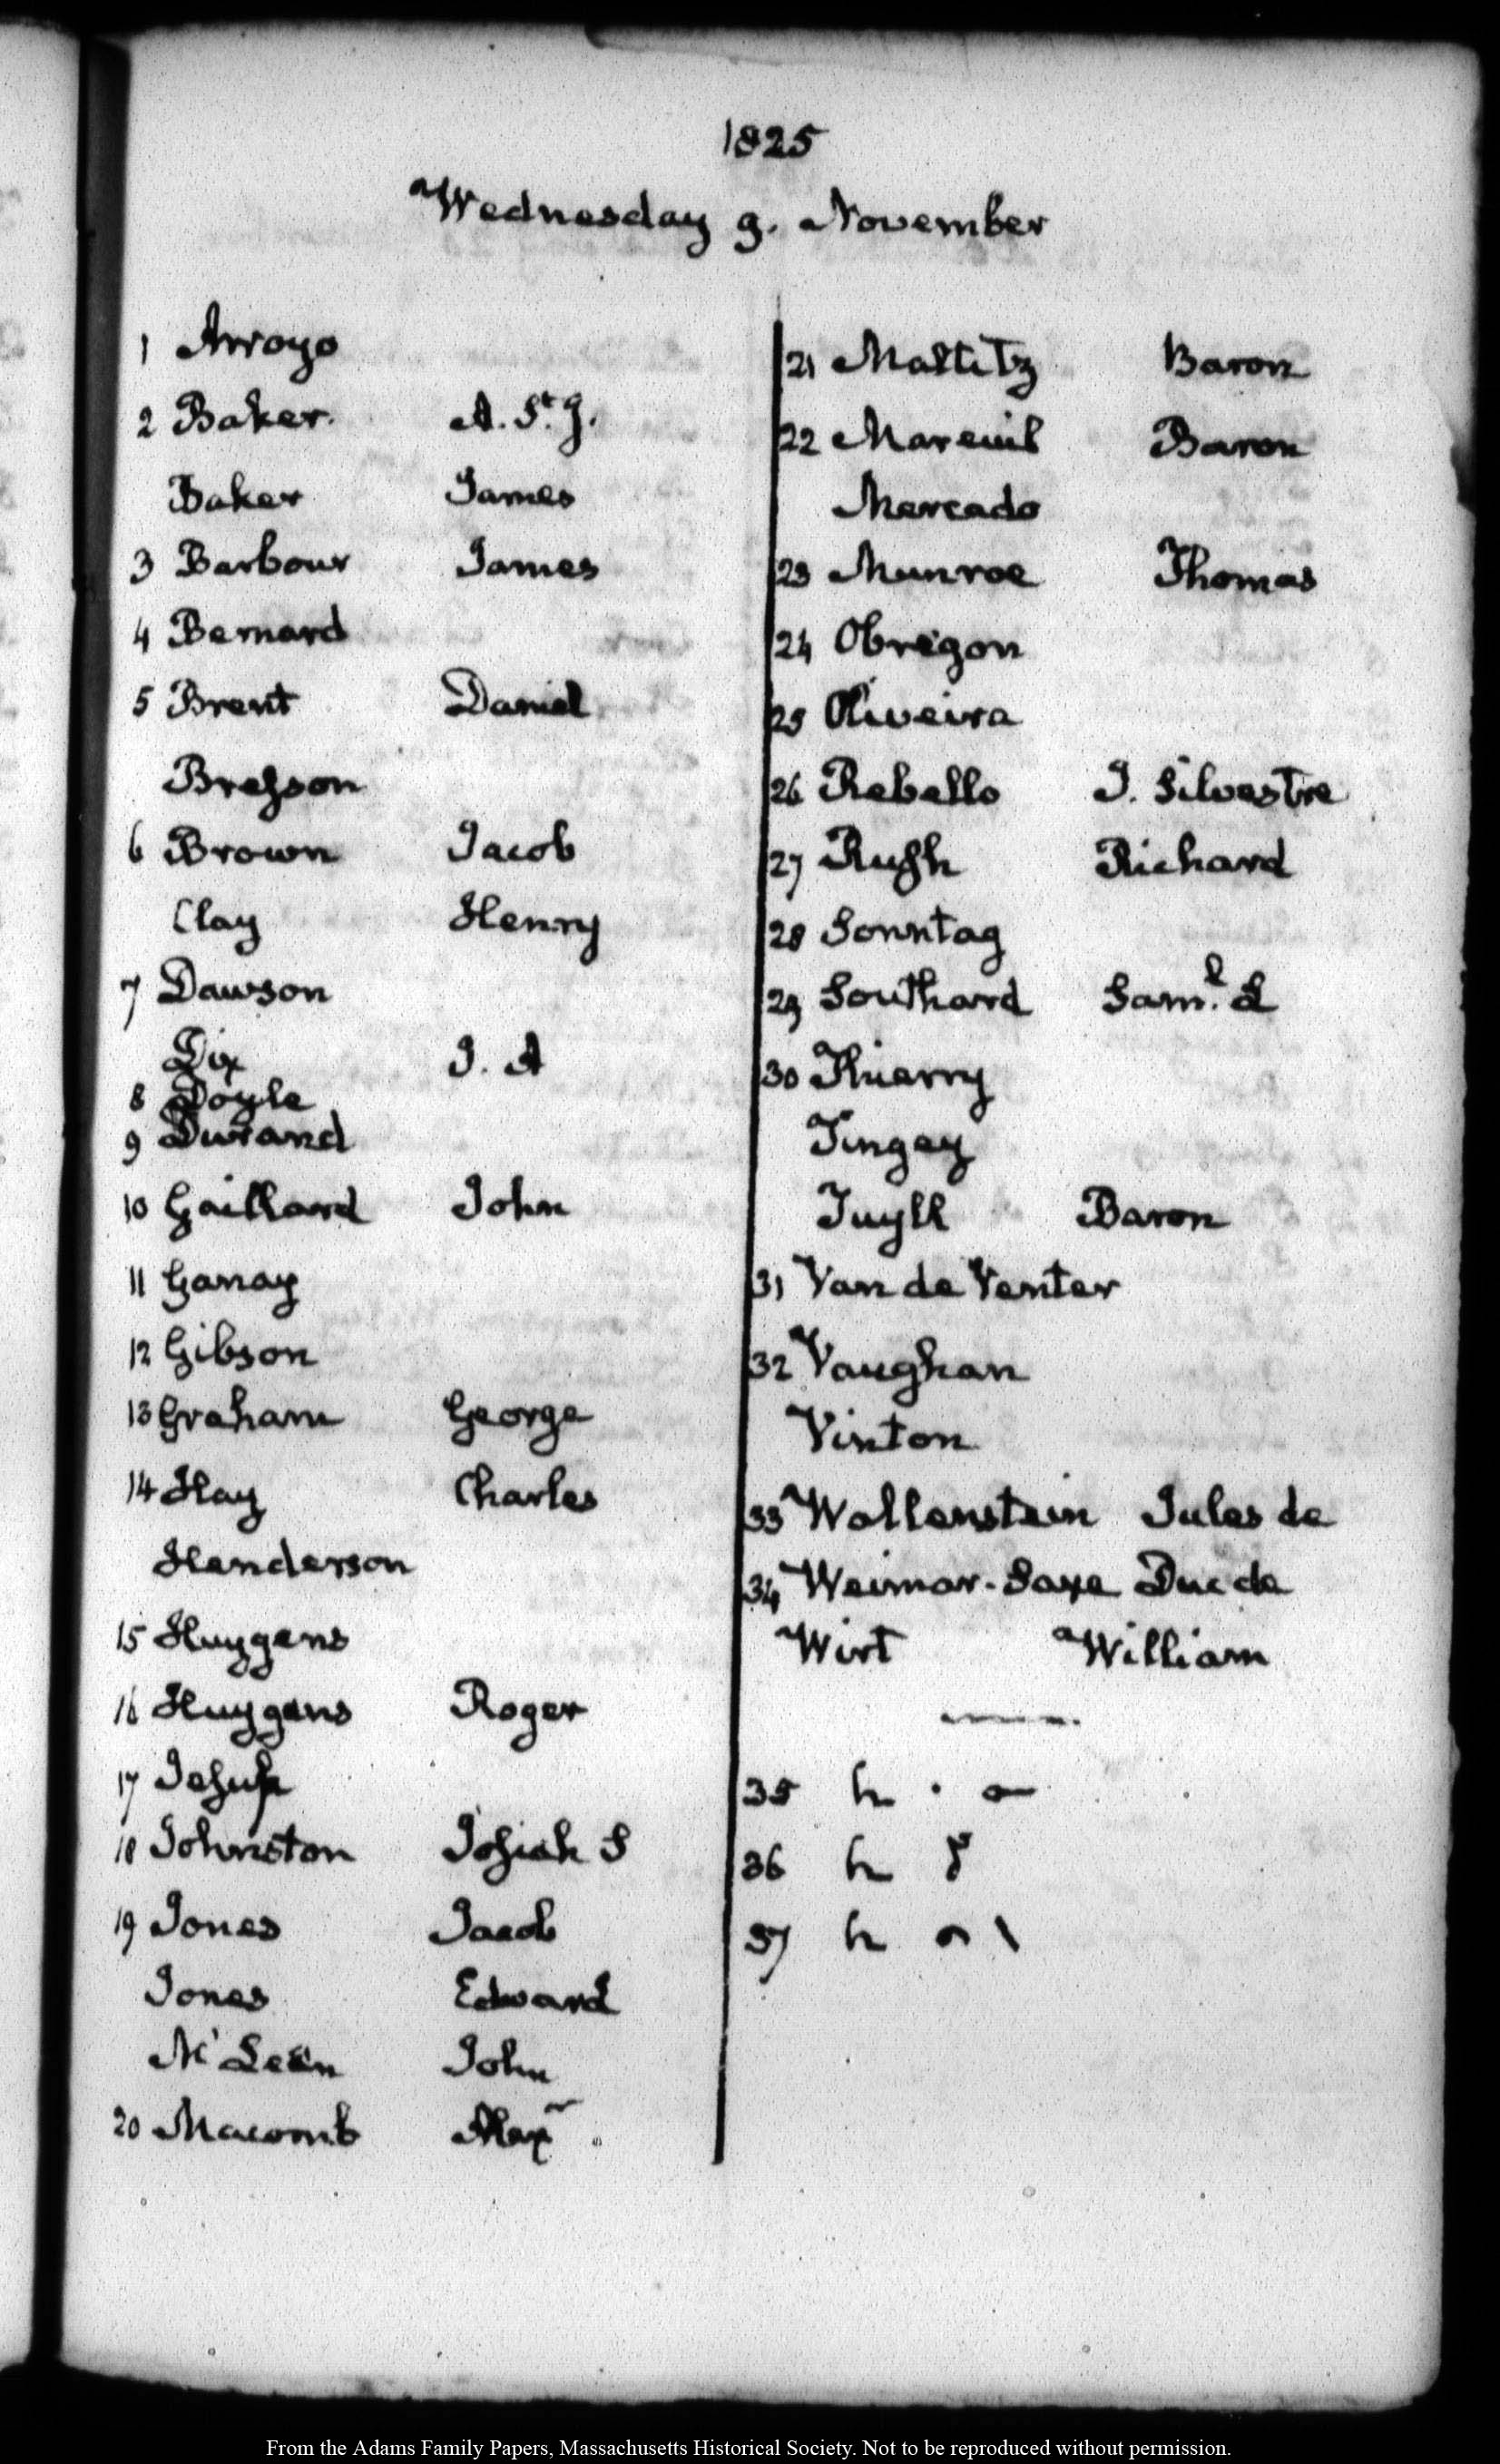 1825
Wednesday 9. November
1 Arroyo
2 Baker. A. St. J.
Baker James
3 Barbour James
4 Bernard
5 Brent Daniel
Bresson
6 Brown Jacob
Clay Henry
7 Dawson
Dix J. A
8 Doyle
9 Durand
10 Gaillard John
11 Ganay
12 Gibson
13 Graham George
14 Hay Charles
Henderson
15 Huygens
16 Huygens Roger
17 Jesup
18 Johnston Josiah S
19 Jones Jacob
Jones Edward
Mc Lean John
20 Macomb Alexr.
21 Maltitz Baron
22 Mareuil Baron
Mercado
23 Munroe Thomas
24 Obregon
25 Oliveira
26 Rebello J. Silvestre
27 Rush Richard
28 Sonntag
29 Southard Saml. L
30 Thierry
Tingey
Tuyll Baron
31 Van de Venter
32 Vaughan
Vinton
33 Wallenstein Jules de
34 Weimar-Saxe Duc de
Wirt William
35
36
37
From the Adams Family Papers, Massachusetts Historical Society. Not to be reproduced without permission.